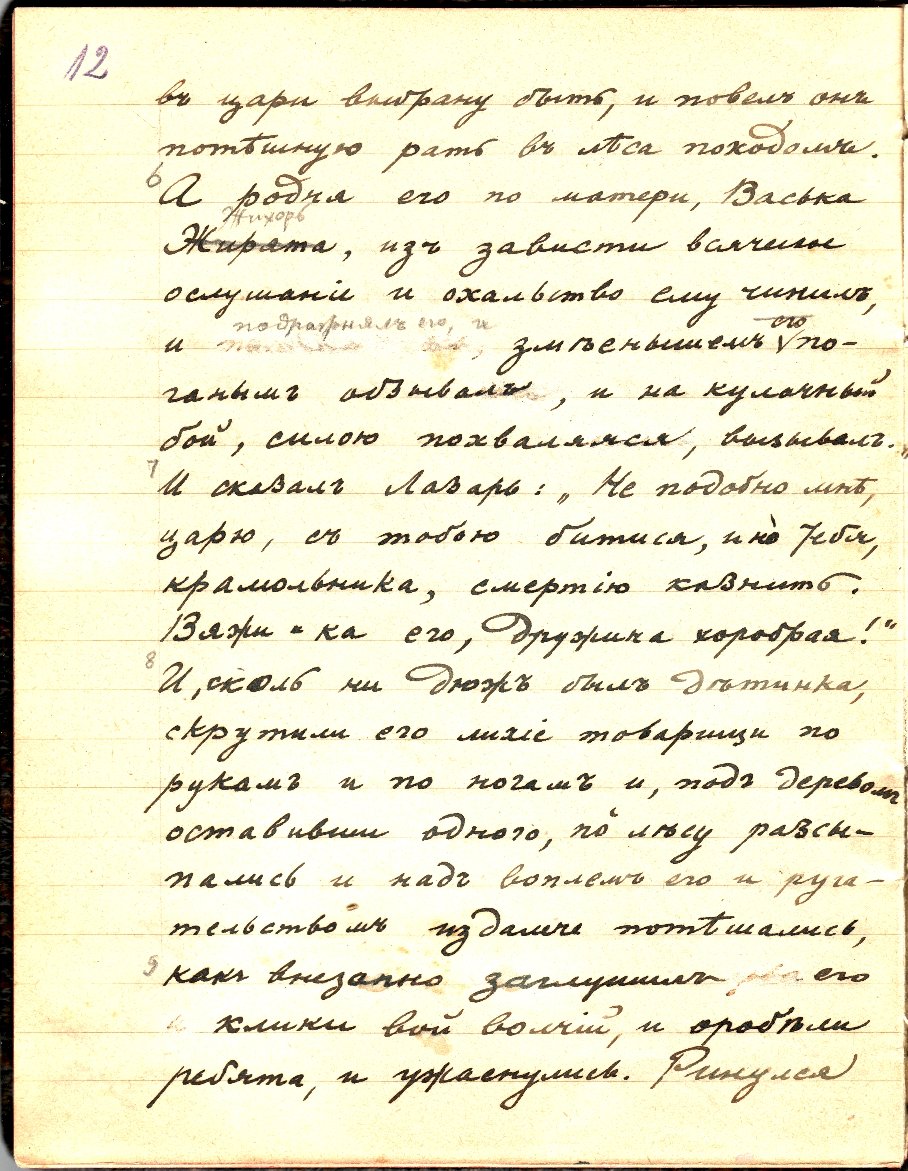 12
въ цари выбрану быть, и повелъ онъ
потѣшную рать въ лѣса походомъ.
6
А родня его по матери, Васька
Жихорь
Жирята, изъ зависти всячески
ослушаніе и охальство ему чинилъ,
подражнялъ его, и
и змѣенышемъ его по-
ганымъ обзывалъ, и на кулачный
бой, силою похваляяся, вызывалъ.
7
И сказалъ Лазарь: „Не подобно мнѣ,
царю, съ тобою битися, ино тебя,
крамольника, смертію казнить.
Вяжи-ка его, дружина хоробрая!"
8
И, сколь ни дюжъ былъ дѣтинка,
скрутили его лихіе товарищи по
рукамъ и по ногамъ и, подъ деревомъ
оставивши одного, по лѣсу разсы-
пались и надъ воплемъ его и руга-
тельствомъ издалече потѣшались,
9
какъ внезапно заглушилъ его
клики вой волчій, и оробѣли
ребята, и ужаснулись. Ринулся